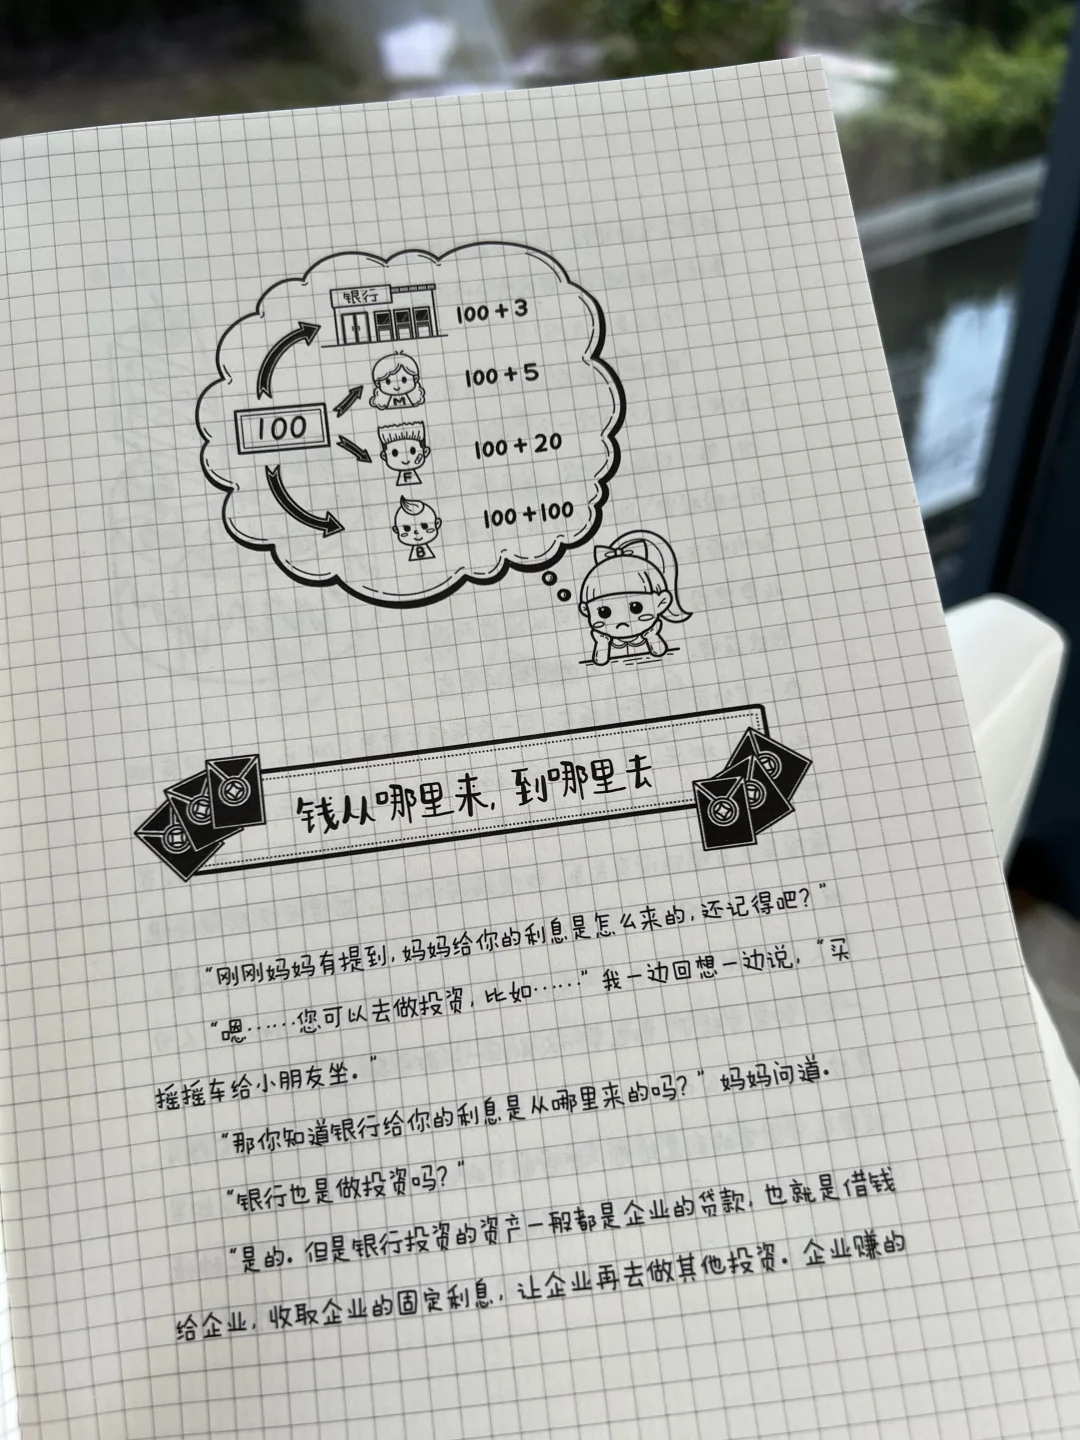 银行
100+3
M
100+5
100
F
100+20
B
100+100
钱从哪里来，到哪里去
“刚刚妈妈有提到，妈妈给你的利息是怎么来的，还记得吧？”
“嗯……您可以去做投资，比如……”我一边回想一边说，“买
摇摇车给小朋友坐。”
“那你知道银行给你的利息是从哪里来的吗？”妈妈问道。
“银行也是做投资吗？”
“是的。但是银行投资的资产一般都是企业的贷款，也就是借钱
给企业，收取企业的固定利息，让企业再去做其他投资。企业赚的